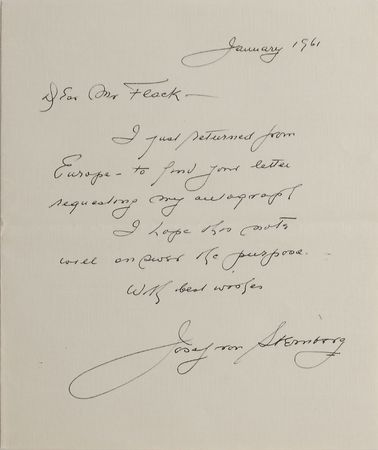 January 1961
Dear Mr Flack —
I just returned from
Europe - to find your letter
requesting my autograph
I hope this note
will answer the purpose.
With best wishes
Josef von Sternberg